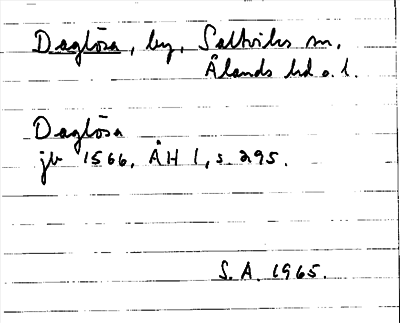 Daglösa, by, Saltviks sn,
Ålands hd o. l.
Daglösa
jb 1566, ÅH 1, s 295.
S. A. 1965.